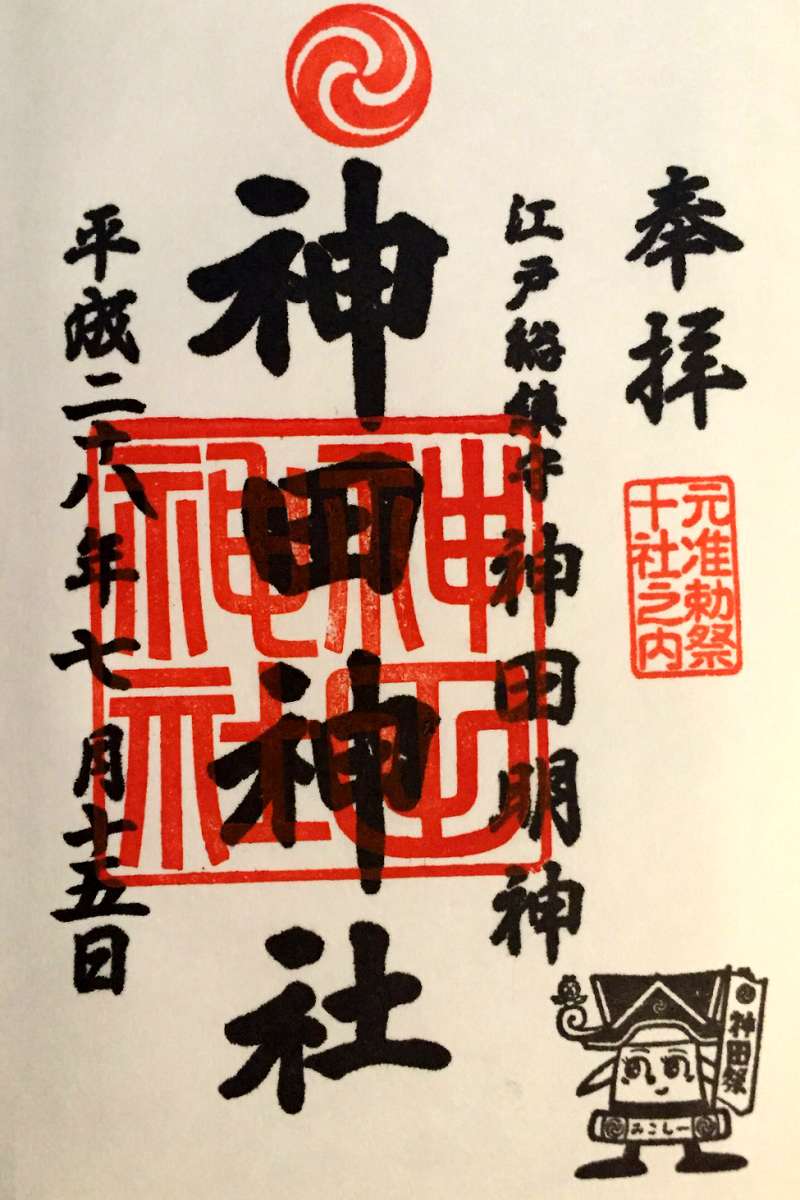 奉拝
元准勅祭
十社之内
江戸総鎮守 神田明神
神田神社
神田
神社
平成二十八年七月十五日
神田祭
みこしー